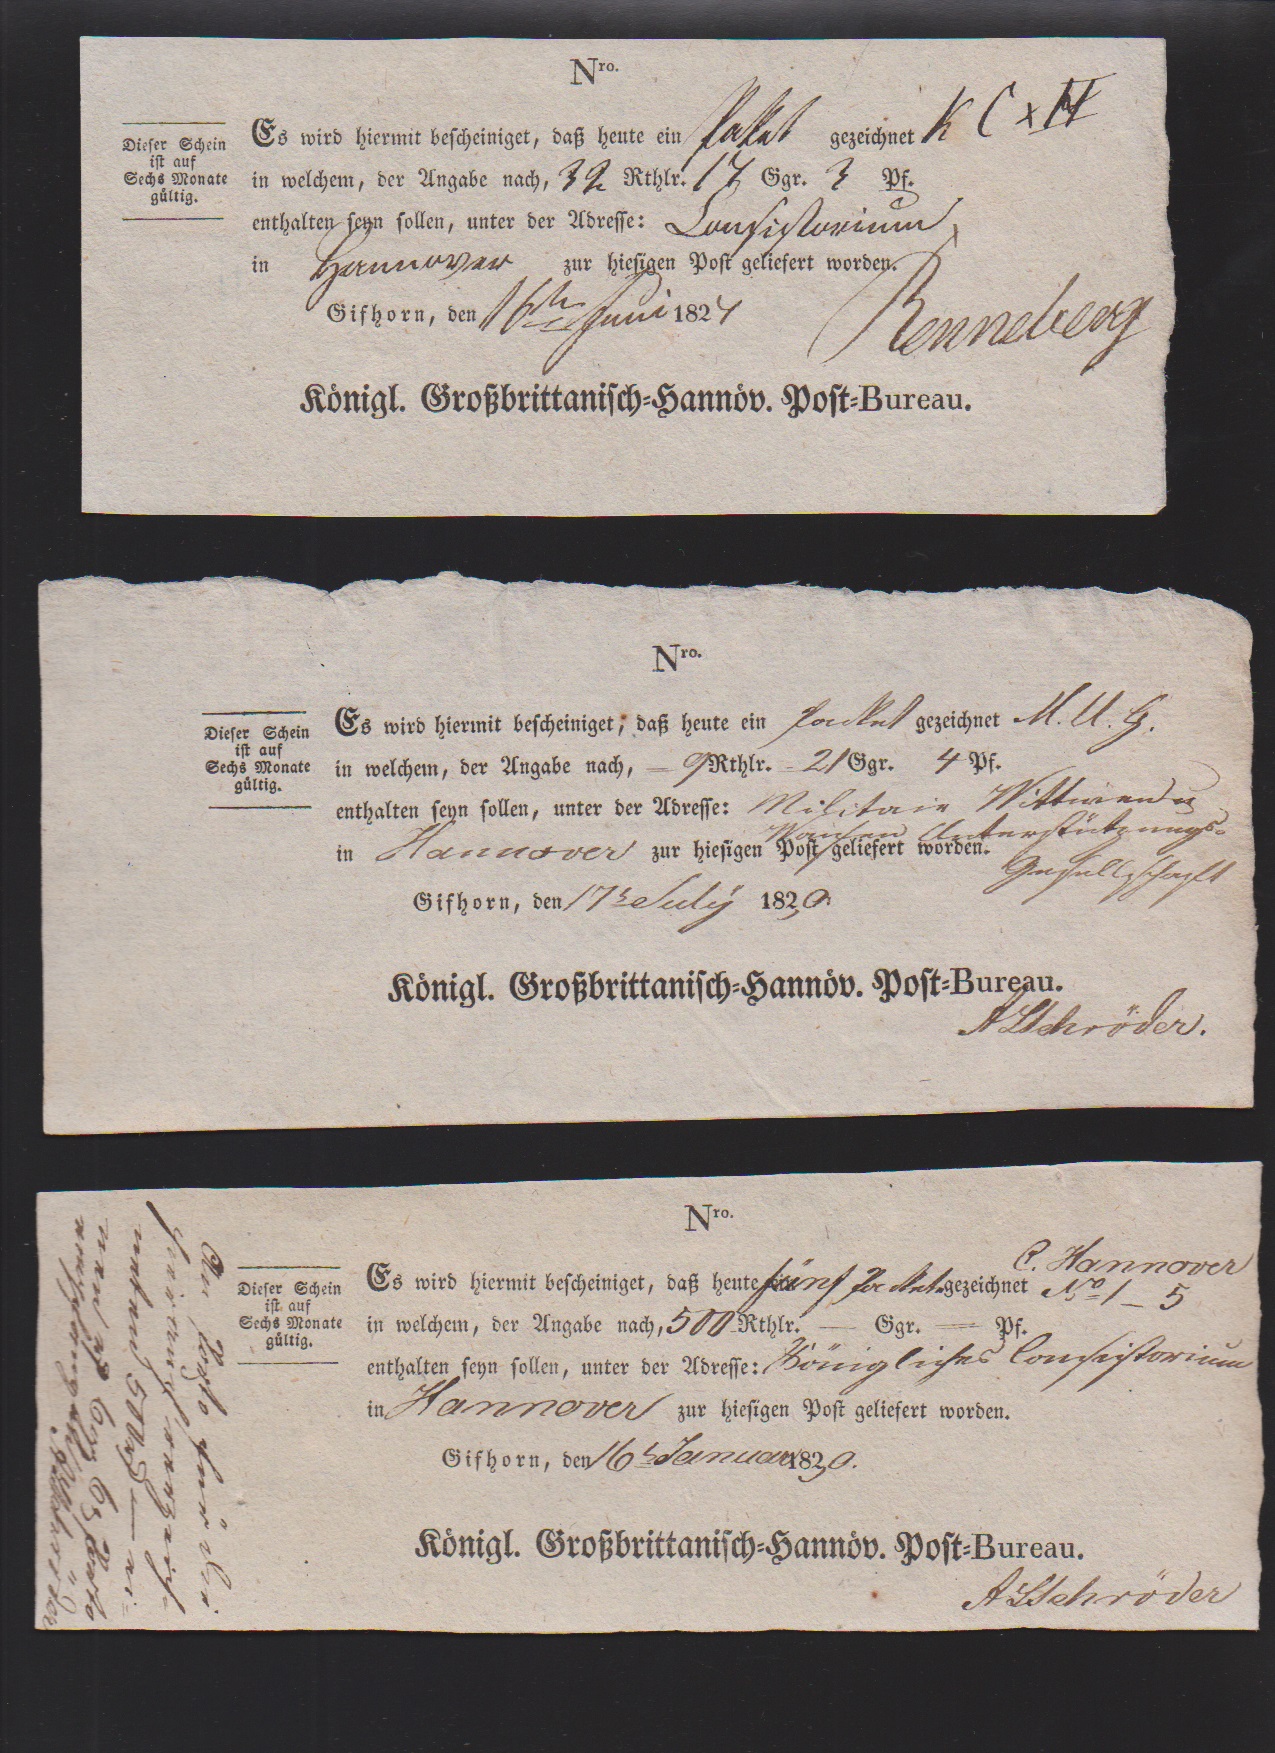 Nro.
Dieser Schein
ist auf
Sechs Monate
gültig.
Es wird hiermit bescheiniget, daß heute ein Paket gezeichnet K C x H
in welchem, der Angabe nach, 32 Rthlr. 17 Ggr. 3 Pf.
enthalten seyn sollen, unter der Adresse: Consistorium
in Hannover zur hiesigen Post geliefert worden.
Gifhorn, den 16ten Juni 1824
Renneberg
Königl. Großbrittanisch-Hannöv. Post-Bureau.
Nro.
Dieser Schein
ist auf
Sechs Monate
gültig.
Es wird hiermit bescheiniget, daß heute ein Packet gezeichnet M. U. G.
in welchem, der Angabe nach, – 9 Rthlr. – 21 Ggr. 4 Pf.
enthalten seyn sollen, unter der Adresse: Militair Wittwen u
Waisen Unterstützungs-
in Hannover zur hiesigen Post geliefert worden.
Gesellschaft
Gifhorn, den 17t July 1820.
Königl. Großbrittanisch-Hannöv. Post-Bureau.
Schröder.
Nro.
Dieser Schein
ist auf
Sechs Monate
gültig.
C. Hannover
Es wird hiermit bescheiniget, daß heute fünf Packete gezeichnet No 1 – 5
in welchem, der Angabe nach, 500 Rthlr. — Ggr. — Pf.
enthalten seyn sollen, unter der Adresse: Königliches Consistorium
in Hannover zur hiesigen Post geliefert worden.
Gifhorn, den 16t Januar 1820.
Königl. Großbrittanisch-Hannöv. Post-Bureau.
Schröder
An Porto
Schröder